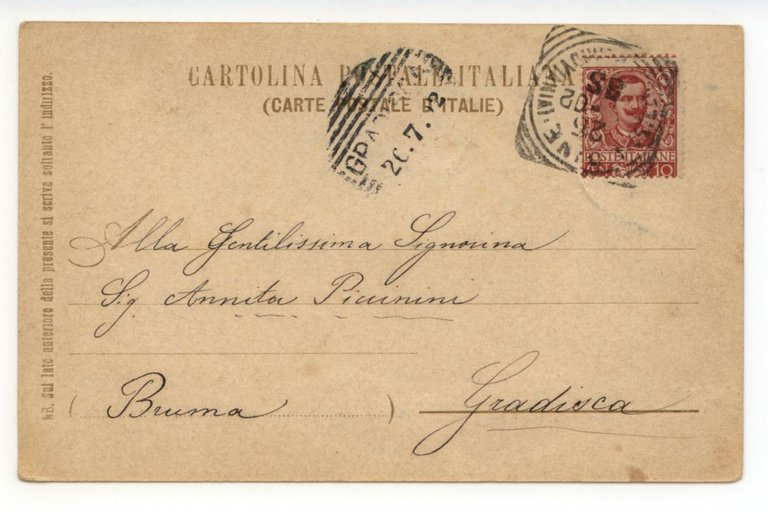 CARTOLINA POSTALE ITALIANA
(CARTE POSTALE D'ITALIE)
20.7.2
POSTE ITALIANE
10
Alla Gentilissima Signorina
Sig Annita Piccinini
(Bruma)
Gradisca
NB. Sul lato anteriore della presente si scrive soltanto l'indirizzo.